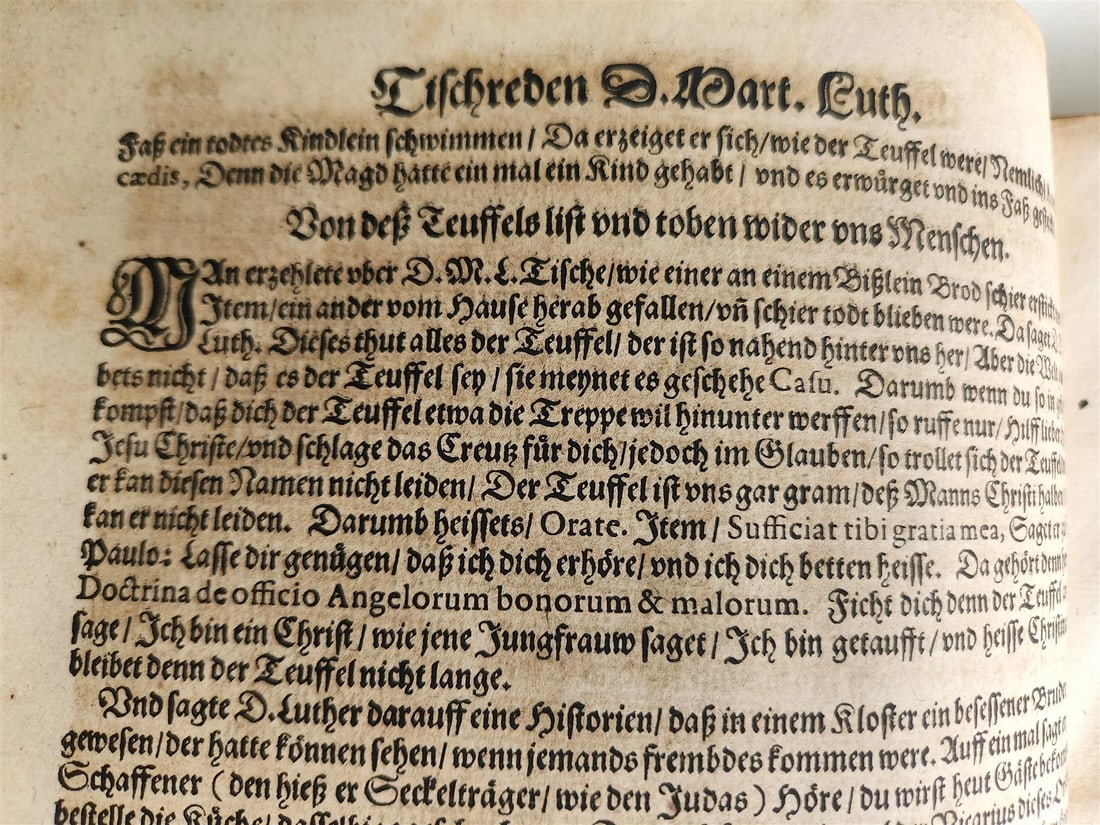 Tischreden D. Mart. Luth.
Faß ein todtes Kindlein schwimmen / Da erzeiget er sich / wie der Teuffel were / Nemlich /
cædis, Denn die Magd hatte ein mal ein Kind gehabt / vnd es erwürget vnd ins Faß
Von deß Teuffels list vnd toben wider vns Menschen.
MAn erzehlete vber D. M. L. Tische / wie einer an einem Bißlein Brod schier
Item / ein ander vom Hause herab gefallen / vñ schier todt blieben were. Da saget
Luth. Dieses thut alles der Teuffel / der ist so nahend hinter vns her / Aber die
bets nicht / daß es der Teuffel sey / sie meynet es geschehe Casu. Darumb wenn du so in
kompst / daß dich der Teuffel etwa die Treppe wil hinunter werffen / so ruffe nur / Hilff lieber
Jesu Christe / vnd schlage das Creutz für dich / jedoch im Glauben / so trollet sich der
er kan diesen Namen nicht leiden / Der Teuffel ist vns gar gram / deß Manns Christi halben
kan er nicht leiden. Darumb heissets / Orate. Item / Sufficiat tibi gratia mea, Saget er
Paulo: Lasse dir genügen / daß ich dich erhöre / vnd ich dich betten heisse. Da gehört
Doctrina de officio Angelorum bonorum & malorum. Ficht dich denn der
sage / Ich bin ein Christ / wie jene Jungfrauw saget / Ich bin getaufft / vnd heisse
bleibet denn der Teuffel nicht lange.
Vnd sagte D. Luther darauff eine Historien / daß in einem Kloster ein besessener
gewesen / der hatte können sehen / wenn jemands frembdes kommen were. Auff ein mal
Schaffener ( den hieß er Seckelträger / wie den Judas ) Höre / du wirst heut Gäste
bestelle die Küche /